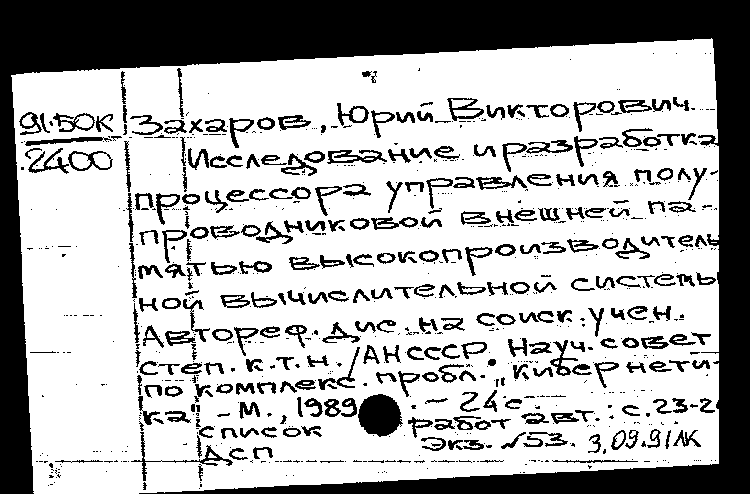 91-БОК Захаров, Юрий Викторович.
2400 Исследование и разработка
процессора управления полу-
проводниковой внешней па-
мятью высокопроизводитель
ной вычислительной системы
Автореф. дис. на соиск. учен.
степ. к.т.н. /АН СССР. Науч. совет
по комплекс. пробл. "Кибернети-
ка" - М., 1989. - 24 с.
список работ авт.: с. 23-2
ДСП Экз. №53. 3.09.91 ЛК